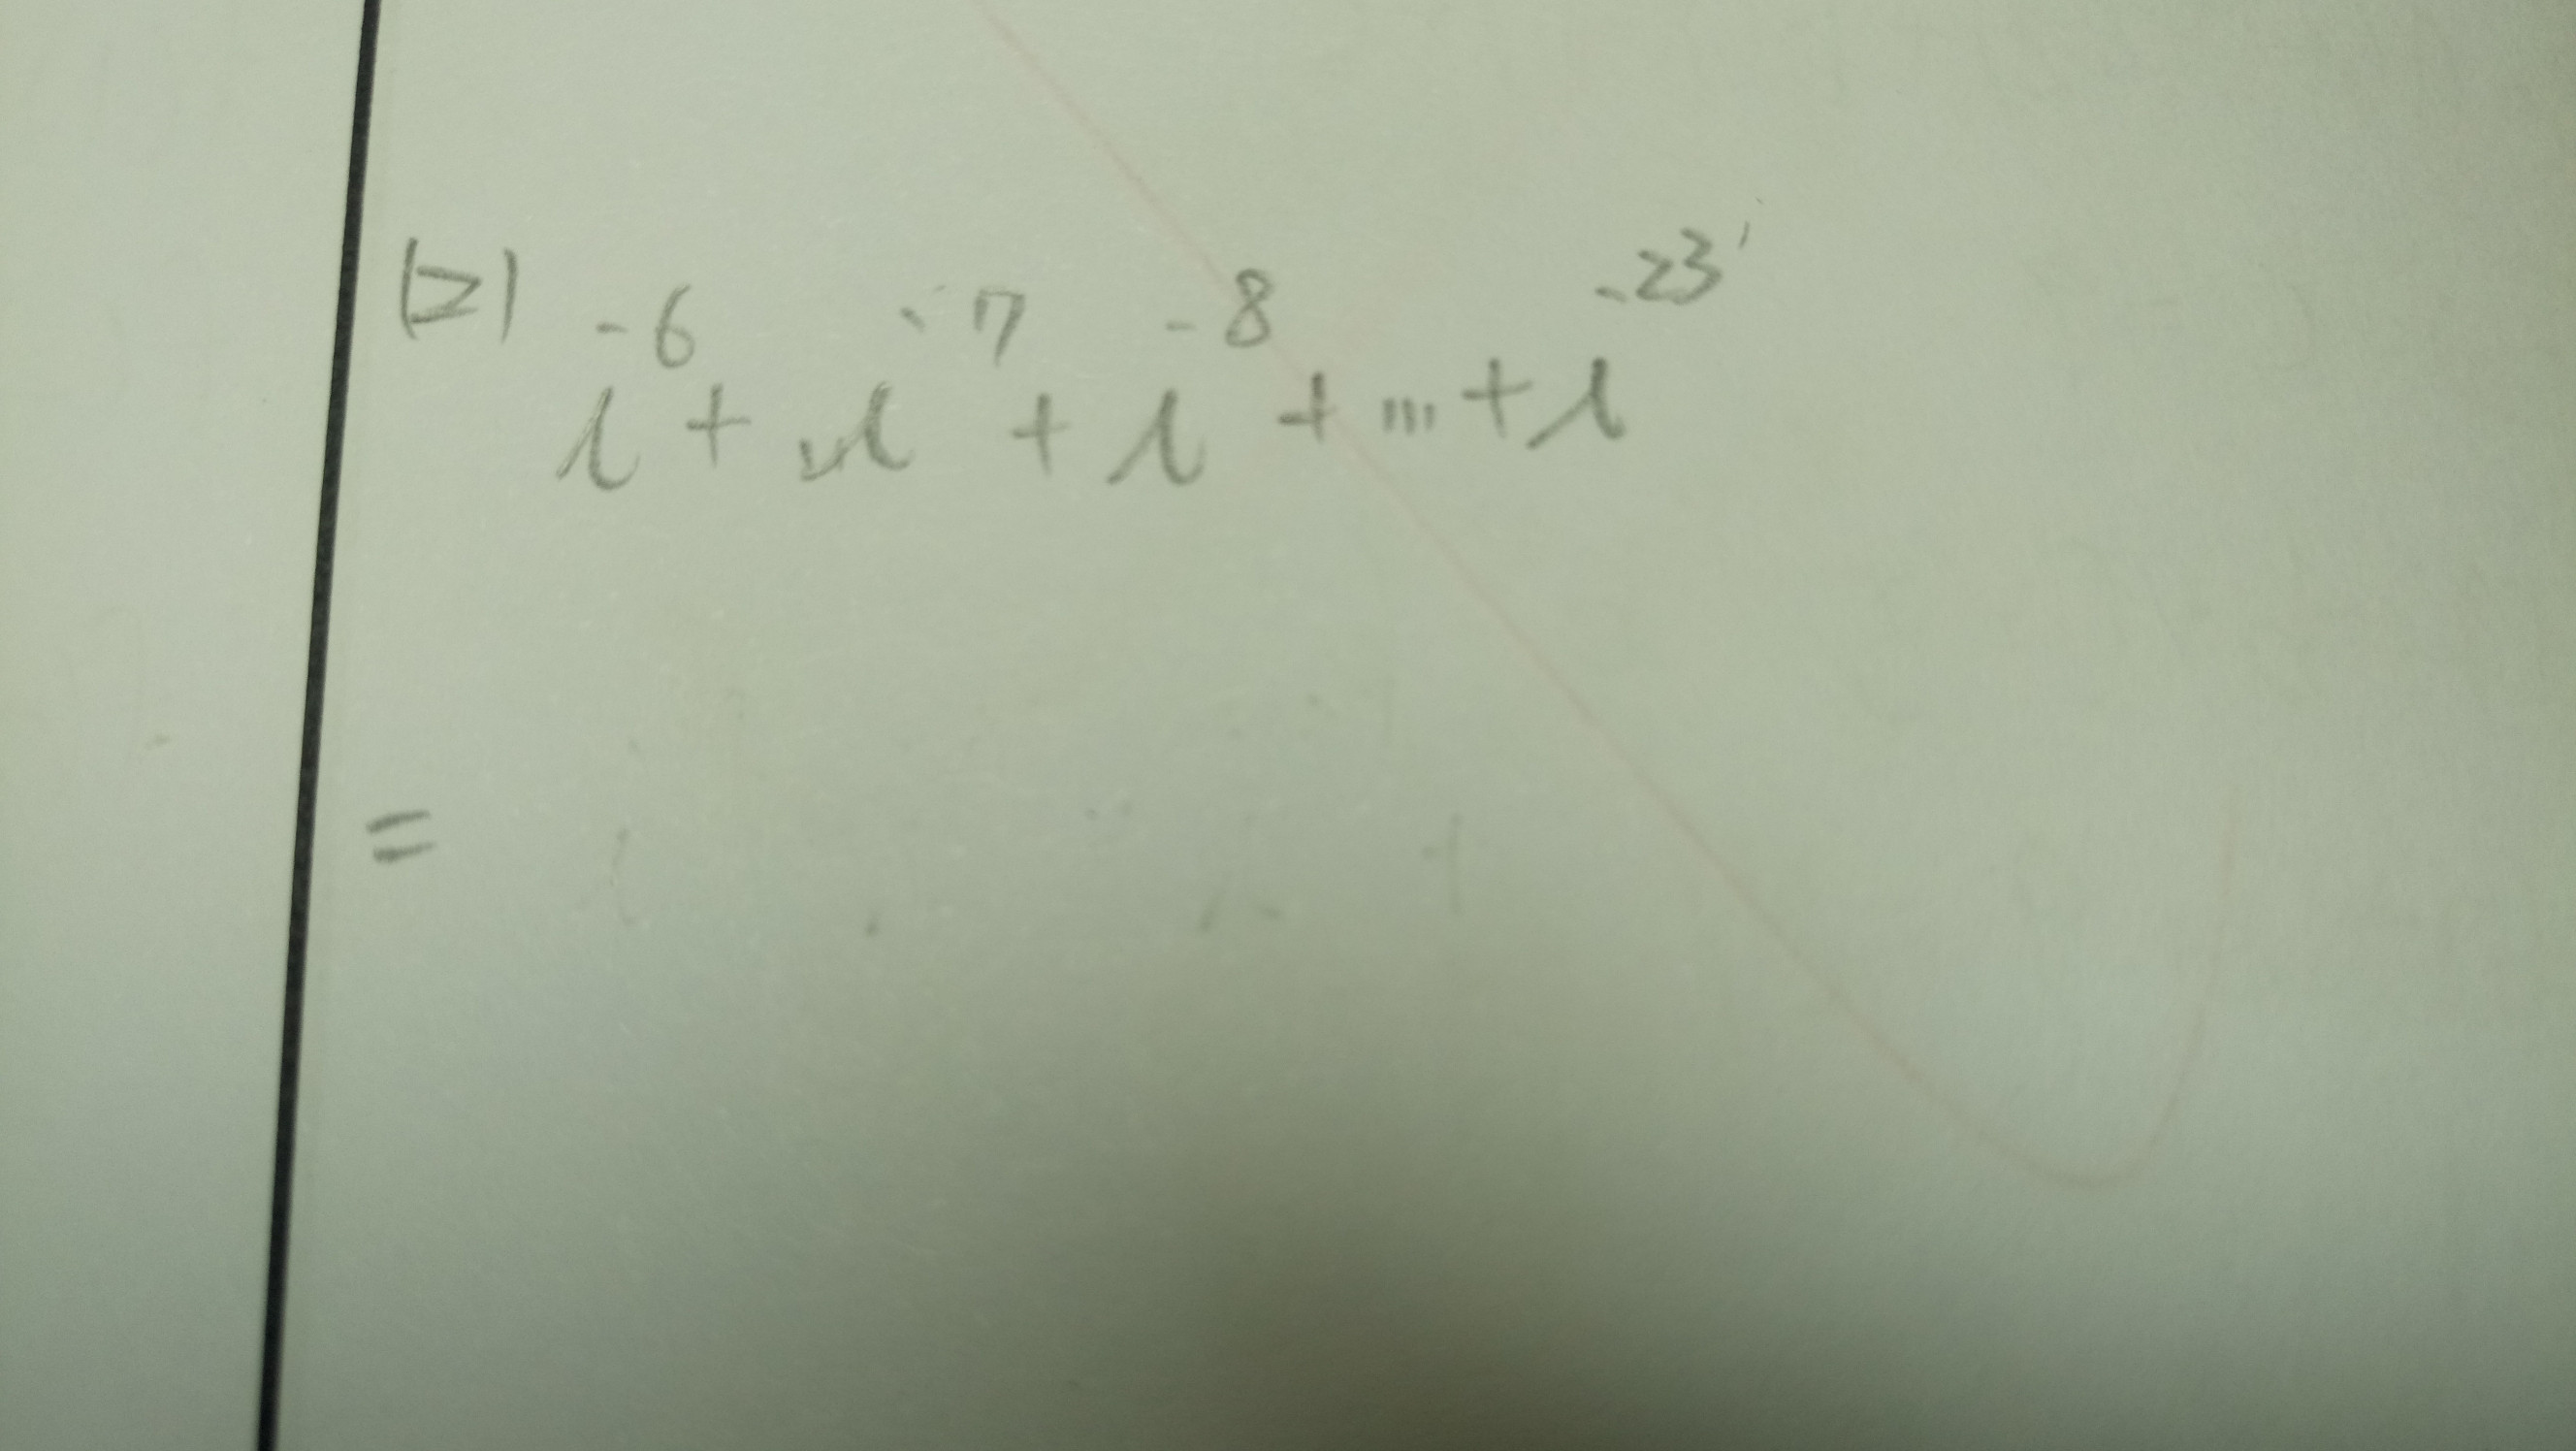 (2)
i⁻⁶ + i⁻⁷ + i⁻⁸ + ... + i⁻²³
=